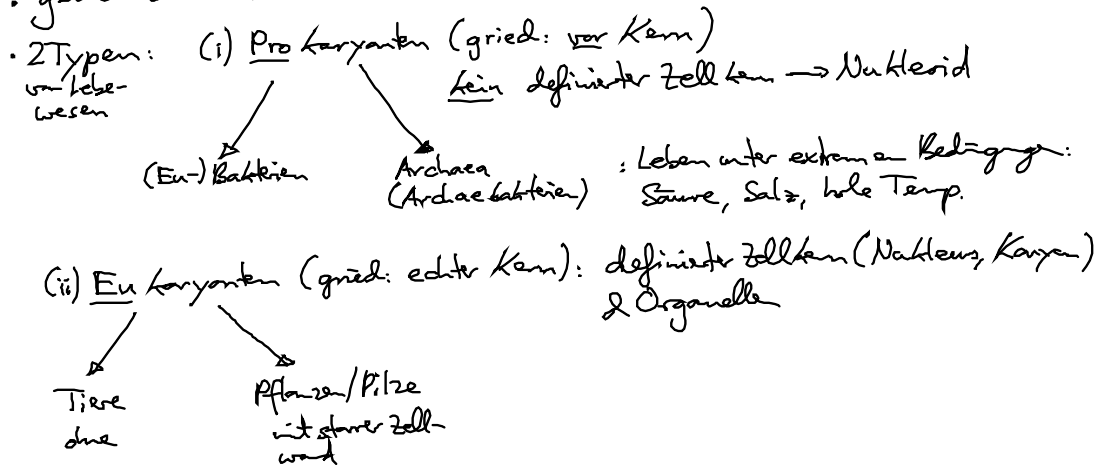 · 2 Typen: (i) Prokaryonten (griech: vor Kern)
von Lebe-
wesen
kein definierter Zellkern → Nukleoid
(Eu-) Bakterien
Archaea
(Archaebakterien)
: Leben unter extremen Bedingungen:
Säure, Salz, hohe Temp.
(ii) Eukaryonten (griech: echter Kern): definierter Zellkern (Nukleus, Karyon)
& Organellen
Tiere
ohne
Pflanzen/Pilze
mit starrer Zell-
wand